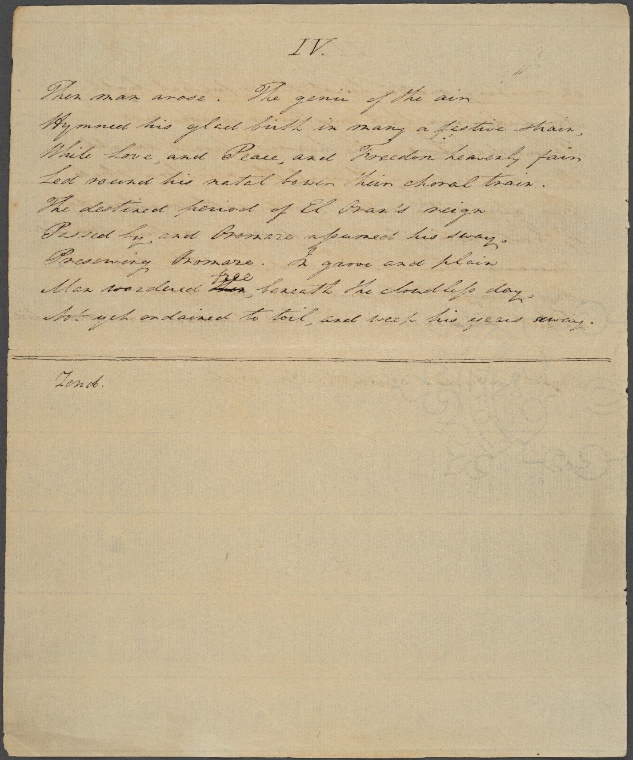 IV.
Then man arose. The genii of the air
Hymned his glad birth in many a festive strain,
While Love, and Peace, and Freedom heavenly fair
Led round his natal bower their choral train.
The destined period of El Oran's reign
Passed by, and Oromaze assumed his sway.
Preserving Oromaze. In grove and plain
free
Man wandered then, beneath the cloudless day,
Not yet ordained to toil, and weep his years away.
Zend.